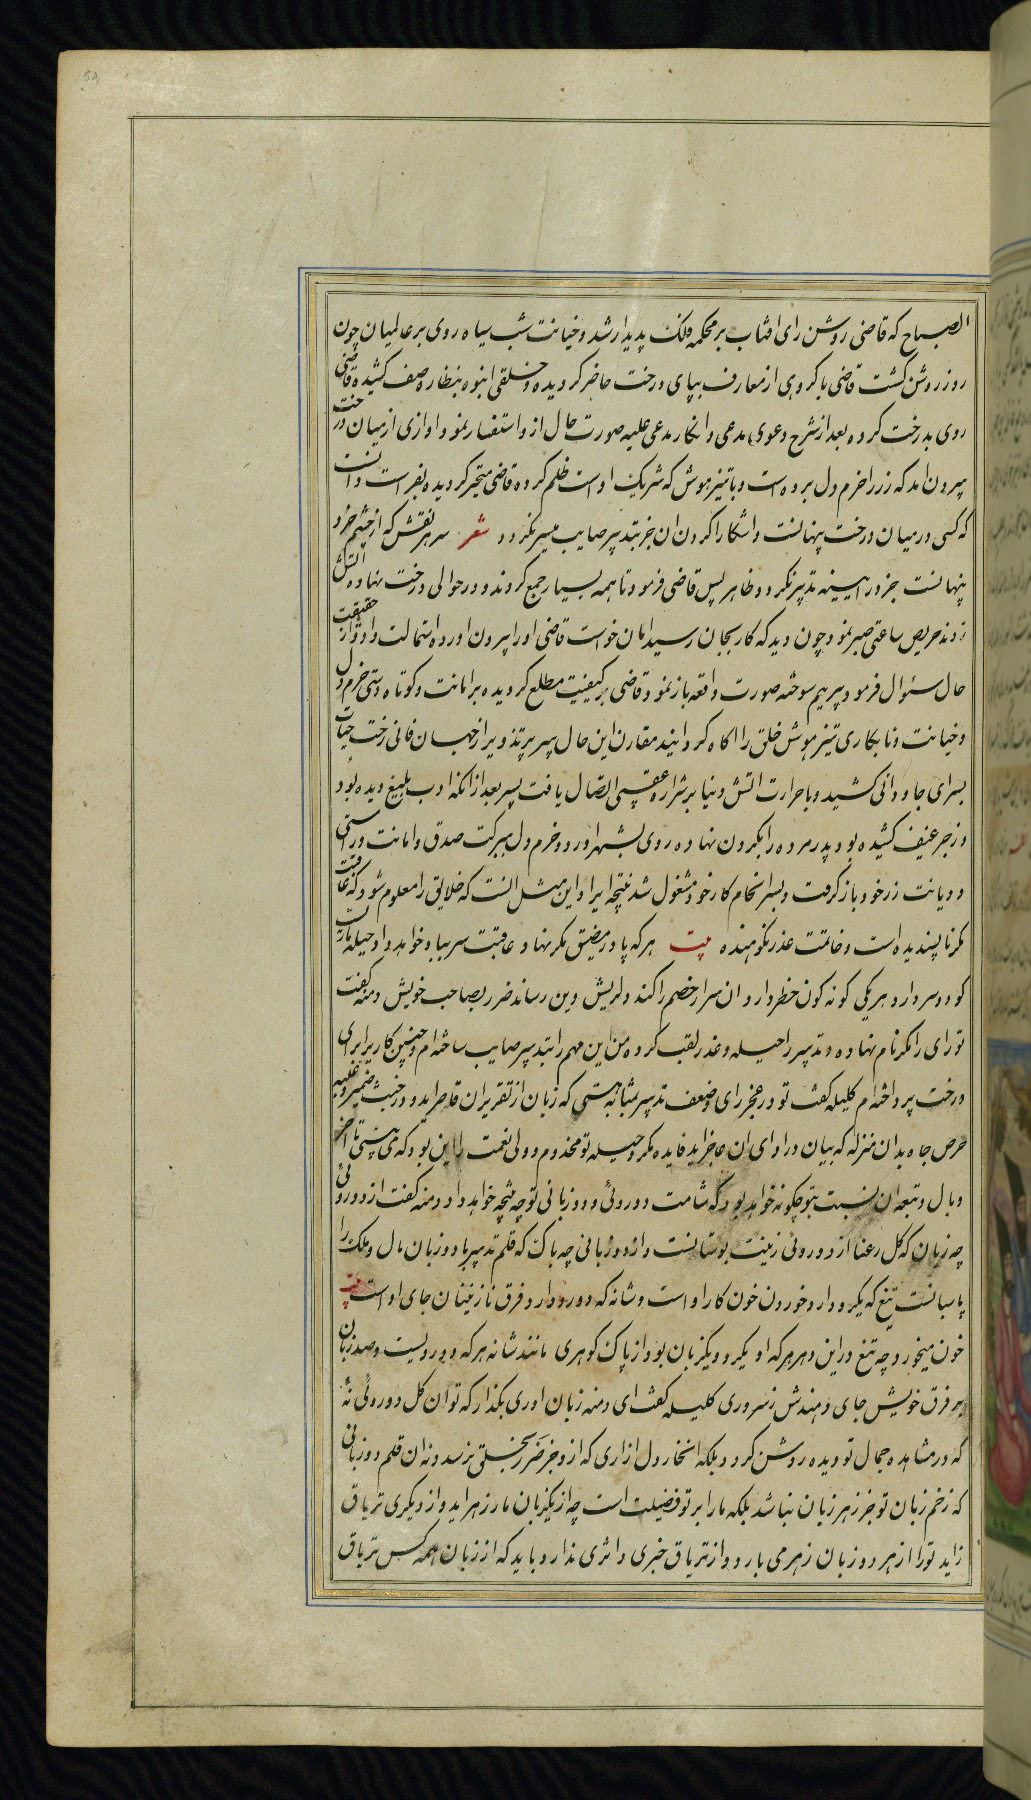 الصباح که قاضی روشن رای افتاب بر محکمه فلک پدیدار شد و خیانت شب سیاه روی بر عالمیان چون
روز روشن کشت قاضی با کروهی از معارف بپای درخت حاضر کردیده و خلقی انبوه بنظاره صف کشیده قاضی
روی بدرخت کرده و بعد از شرح دعوی مدعی و انکار مدعی علیه صورت حال از و استفسار نمود اوازی از میان درخت
بیرون امد که زر را خرم دل برده است و با تیزهوش که شریک او است ظلم کرده قاضی متحیر کردیده بفراست دانست
که کسی در میان درخت پنهانست و اشکارا کردن ان جز بتدبیر صایب میسر نکردد شعر سر هر نقش که از چشم خرد
پنهانست جز در ایینه تدبیر نکردد ظاهر پس قاضی فرمود تا همه بسیار جمع کردند و در حوالی درخت نهاده اتش
زدند حریص ساعتی صبر نمود چون دید که کار بجان رسید امان خواست قاضی او را بیرون اورده استمالت داد و از حقیقت
حال سئوال فرمود پیر نیم سوخته صورت واقعه باز نمود قاضی بر کیفیت مطلع کردیده بر امانت و کوتاه دستی خرم دل
و خیانت و نابکاری تیزهوش خلق را اکاه کردانید مقارن این حال پیر پر تذویر از جهان فانی رخت حیات
بسرای جاودانی کشید و با حرارت اتش دنیا بر شراره عقبی اتصال یافت پسر بعد از انکه ادب بلیغ دیده بود
و زجر عنیف کشیده بود پدر مرده را بکردن نهاده روی بشهر اورد و خرم دل ببرکت صدق و امانت و راستی
و دیانت زر خود باز کرفت و بسر انجام کار خود مشغول شد نتیجه ایراد این مثل انست که خلایق را معلوم شود که عاقبت
مکر ناپسندیده است و خاتمت عذر نکوهنده بیت هر که پا در مضیق مکر نهاد عاقبت سر بباد خواهد داد حیله ماریست
کو دو سر دارد هر یکی کونه کون خطر دارد ان سر از خصم را کند دلریش وین رساند ضرر بصاحب خویش دمنه کفت
تو رای را مکر نام نهاده و تدبیر را حیله و غدر لقب کرده من این مهم را بتدبیر صایب ساخته ام و چنین کار برابر رای
درخت پرداخته ام کلیله کفت تو در عجز رای و ضعف تدبیر بمثابه هستی که زبان از تقریر ان قاصر اید و در خبث ضمیر و غلبه
حرص جاه بدان منزله که بیان در ادای ان عاجز اید فایده مکر و حیله تو مخدوم و ولی نعمت را این بود که می بینی تا اخر
وبال و تبعه ان نسبت بتو چکونه خواهد بود که شامت دوروئی و دو زبانی تو چه نتیجه خواهد داد دمنه کفت از دوروئی
چه زیان که کل رعنا از دوروئی زینت بوستانست و از دوزبانی چه باک که قلم تدبیر با دو زبان مال و ملک را
پاسبانست تیغ که یکرو دارد خوردن خون کار او است و شانه که دو رو دارد فرق نازنینان جای او است بیت
خون میخورد چه تیغ در این دهر هر که او یکرو و یکزبان بود از پاک کوهری مانند شانه هر که دورویست و صد زبان
بر فرق خویش جای دهندش ز سروری کلیله کفت ای دمنه زبان اوری بکذار که تو ان کل دوروئی نهٔ
که در مشاهده جمال تو دیده روشن کردد بلکه انخار دل ازاری که از و جز ضرر بخلق نرسد و نه ان قلم دوزبانی
که زخم زبان تو جز زهر زبان نباشد بلکه مار ابر تو فضیلت است چه از یکزبان مار زهر اید و از دیکری تریاق
زاید تورا از هر دو زبان زهر می بارد و از تریاق خبری و اثری ندارد باید که از زبان همه کس تریاق